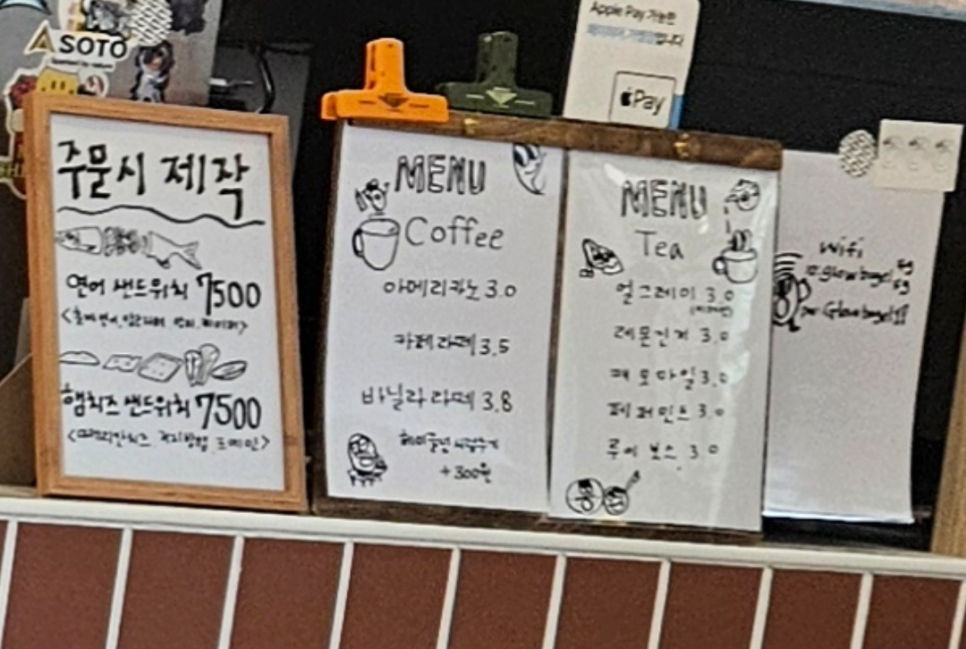 ASOTO
Apple Pay 가능한
Pay
주문시 제작
연어 샌드위치 7500
햄치즈 샌드위치 7500
MENU
Coffee
아메리카노 3.0
카페라떼 3.5
바닐라 라떼 3.8
헤이즐넛 시럽추가
+300원
MENU
Tea
얼그레이 3.0
레몬진저 3.0
캐모마일 3.0
페퍼민트 3.0
루이보스 3.0
Wifi